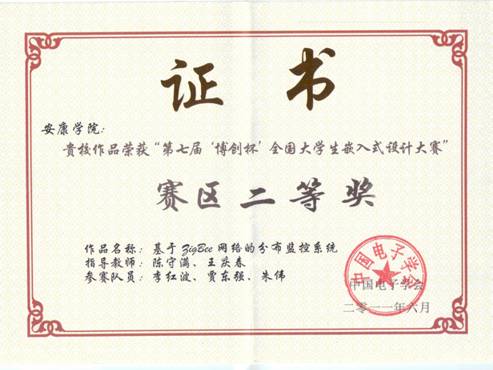 证书
安康学院：
贵校作品荣获“第七届‘博创杯’全国大学生嵌入式设计大赛”
赛区二等奖
作品名称：基于ZigBee网络的分布监控系统
指导教师：陈守满、王庆春
参赛队员：李红波、贾东强、朱伟
中国电子学会
中国电子学会
二零一一年六月